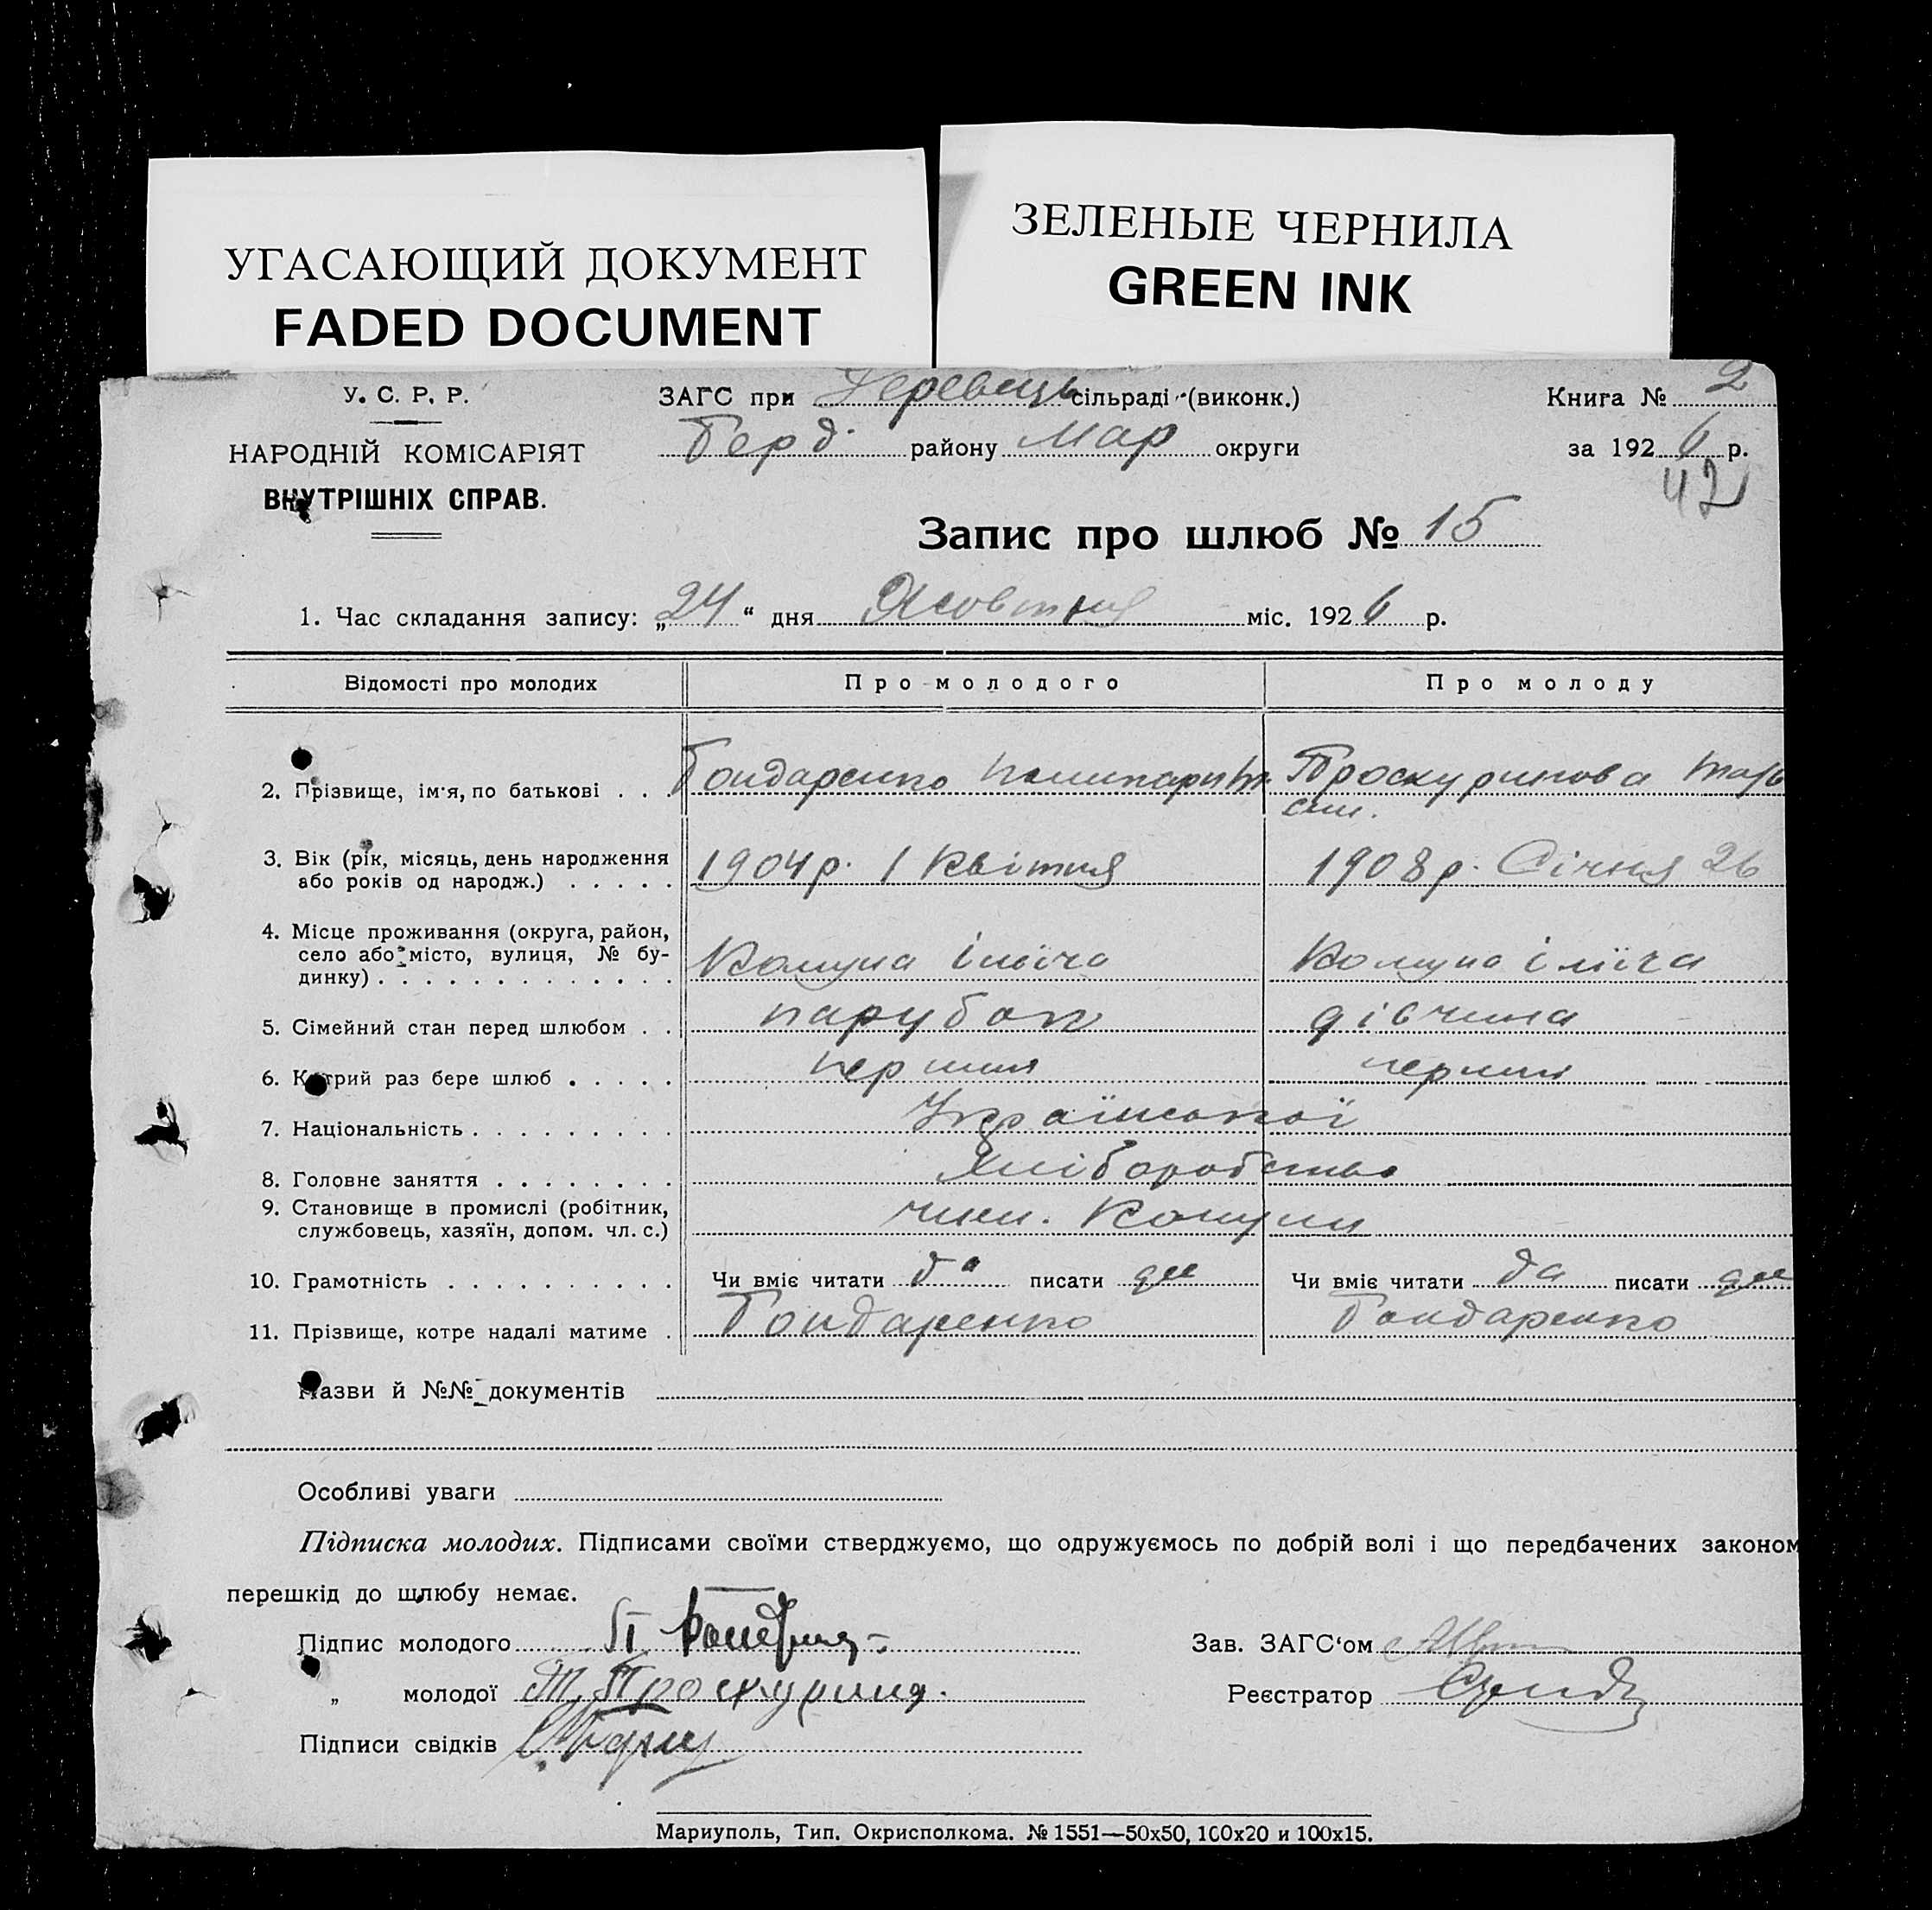 УГАСАЮЩИЙ ДОКУМЕНТ
FADED DOCUMENT
ЗЕЛЕНЫЕ ЧЕРНИЛА
GREEN INK
У. С. Р. Р.
НАРОДНІЙ КОМІСАРІЯТ
ВНУТРІШНІХ СПРАВ.
ЗАГС при сільраді (виконк.)
Берд. району Мар округи
Книга № 2
за 1926 р.
42
Запис про шлюб № 15
1. Час складання запису: „24“ дня Жовтня міс. 1926 р.
Відомості про молодих Про молодого Про молоду
2. Прізвище, ім'я, по батькові . . . Бондаренко Проскуринова
3. Вік (рік, місяць, день народження
або років од народж.) . . . . . 1904 р. 1 Квітня 1908 р. Січня 26
4. Місце проживання (округа, район,
село або місто, вулиця, № бу-
динку) . . . . . . . . . . . . . Комуна Ілліча Комуна Ілліча
5. Сімейний стан перед шлюбом . . парубок дівчина
6. Котрий раз бере шлюб . . . . . перший перший
7. Національність . . . . . . . . . Української
8. Головне заняття . . . . . . . . Хліборобство
9. Становище в промислі (робітник,
службовець, хазяїн, допом. чл. с.) член. Комуни
10. Грамотність . . . . . . . . . . Чи вміє читати да писати да Чи вміє читати да писати да
11. Прізвище, котре надалі матиме . Бондаренко Бондаренко
Назви й №№ документів
Особливі уваги
Підписка молодих. Підписами своїми стверджуємо, що одружуємось по добрій волі і що передбачених законом
перешкід до шлюбу немає.
Підпис молодого П
Зав. ЗАГС'ом
„ молодої Т. Проскурина.
Реєстратор
Підписи свідків
Мариуполь, Тип. Окрисполкома. № 1551—50х50, 100х20 и 100х15.